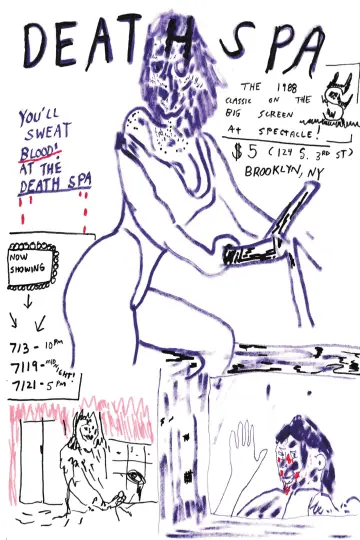 DEATH SPA
THE 1988
CLASSIC ON THE
BIG SCREEN
AT SPECTACLE!
$5 (124 S. 3RD ST)
BROOKLYN, NY
YOU'LL
SWEAT
BLOOD!
AT THE
DEATH SPA
NOW
SHOWING
7/3 - 10PM
7/19 - MIDNIGHT!
7/21 - 5PM